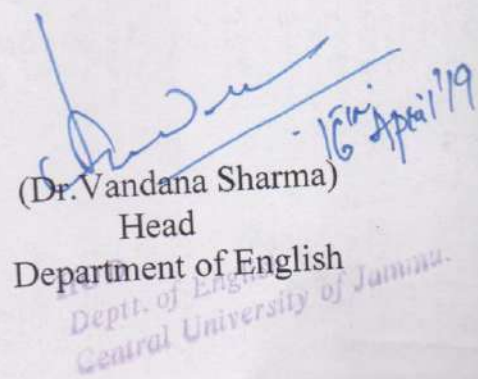 16th April'19
(Dr.Vandana Sharma)
Head
Department of English
Deptt. of English
Central University of Jammu.